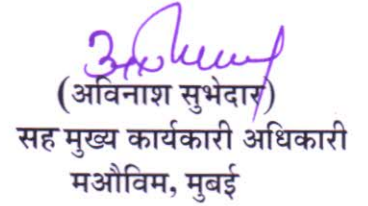 (अविनाश सुभेदार)
सह मुख्य कार्यकारी अधिकारी
मऔविम, मुबई